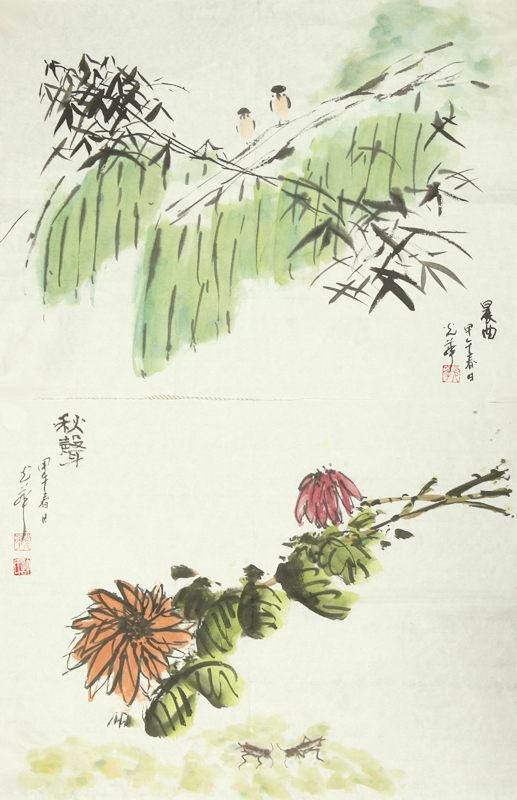 晨曲
甲午春日
光華
秋聲
甲午春日
光華